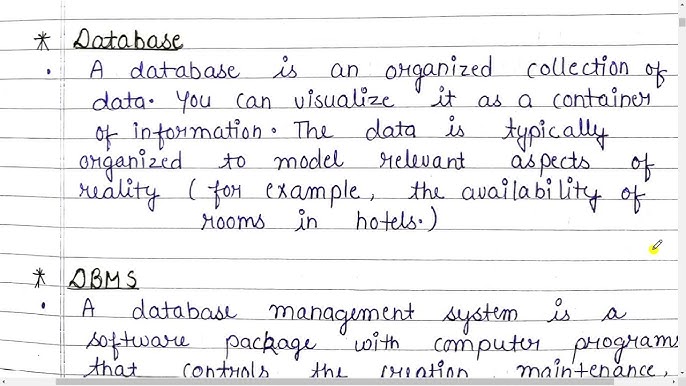 * Database
• A database is an organized collection of
data. You can visualize it as a container
of information. The data is typically
organized to model relevant aspects of
reality (for example, the availability of
rooms in hotels.)
* DBMS
• A database management system is a
software package with computer programs
that controls the creation, maintenance,